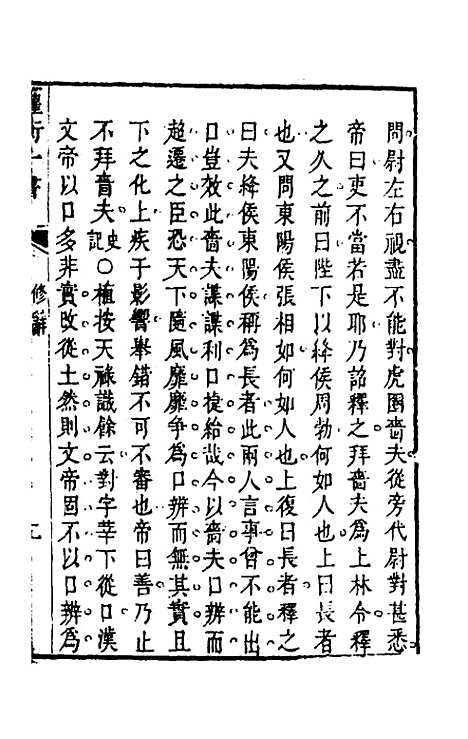 問尉左右視盡不能對虎圈嗇夫從旁代尉對甚悉
帝曰吏不當若是耶乃詔釋之拜嗇夫爲上林令釋
之久之前曰陛下以絳侯周勃何如人也上曰長者
也又問東陽侯張相如何如人也上復曰長者釋之
曰夫絳侯東陽侯稱爲長者此兩人言事曾不能出
口豈效此嗇夫諜諜利口捷給哉今以嗇夫口辨而
超遷之臣恐天下隨風靡靡争爲口辨而無其實且
下之化上疾于影響舉錯不可不審也帝曰善乃止
不拜嗇夫史記○植按天祿識餘云對字莘下從口漢
文帝以口多非實改從土然則文帝固不以口辨爲
修辭